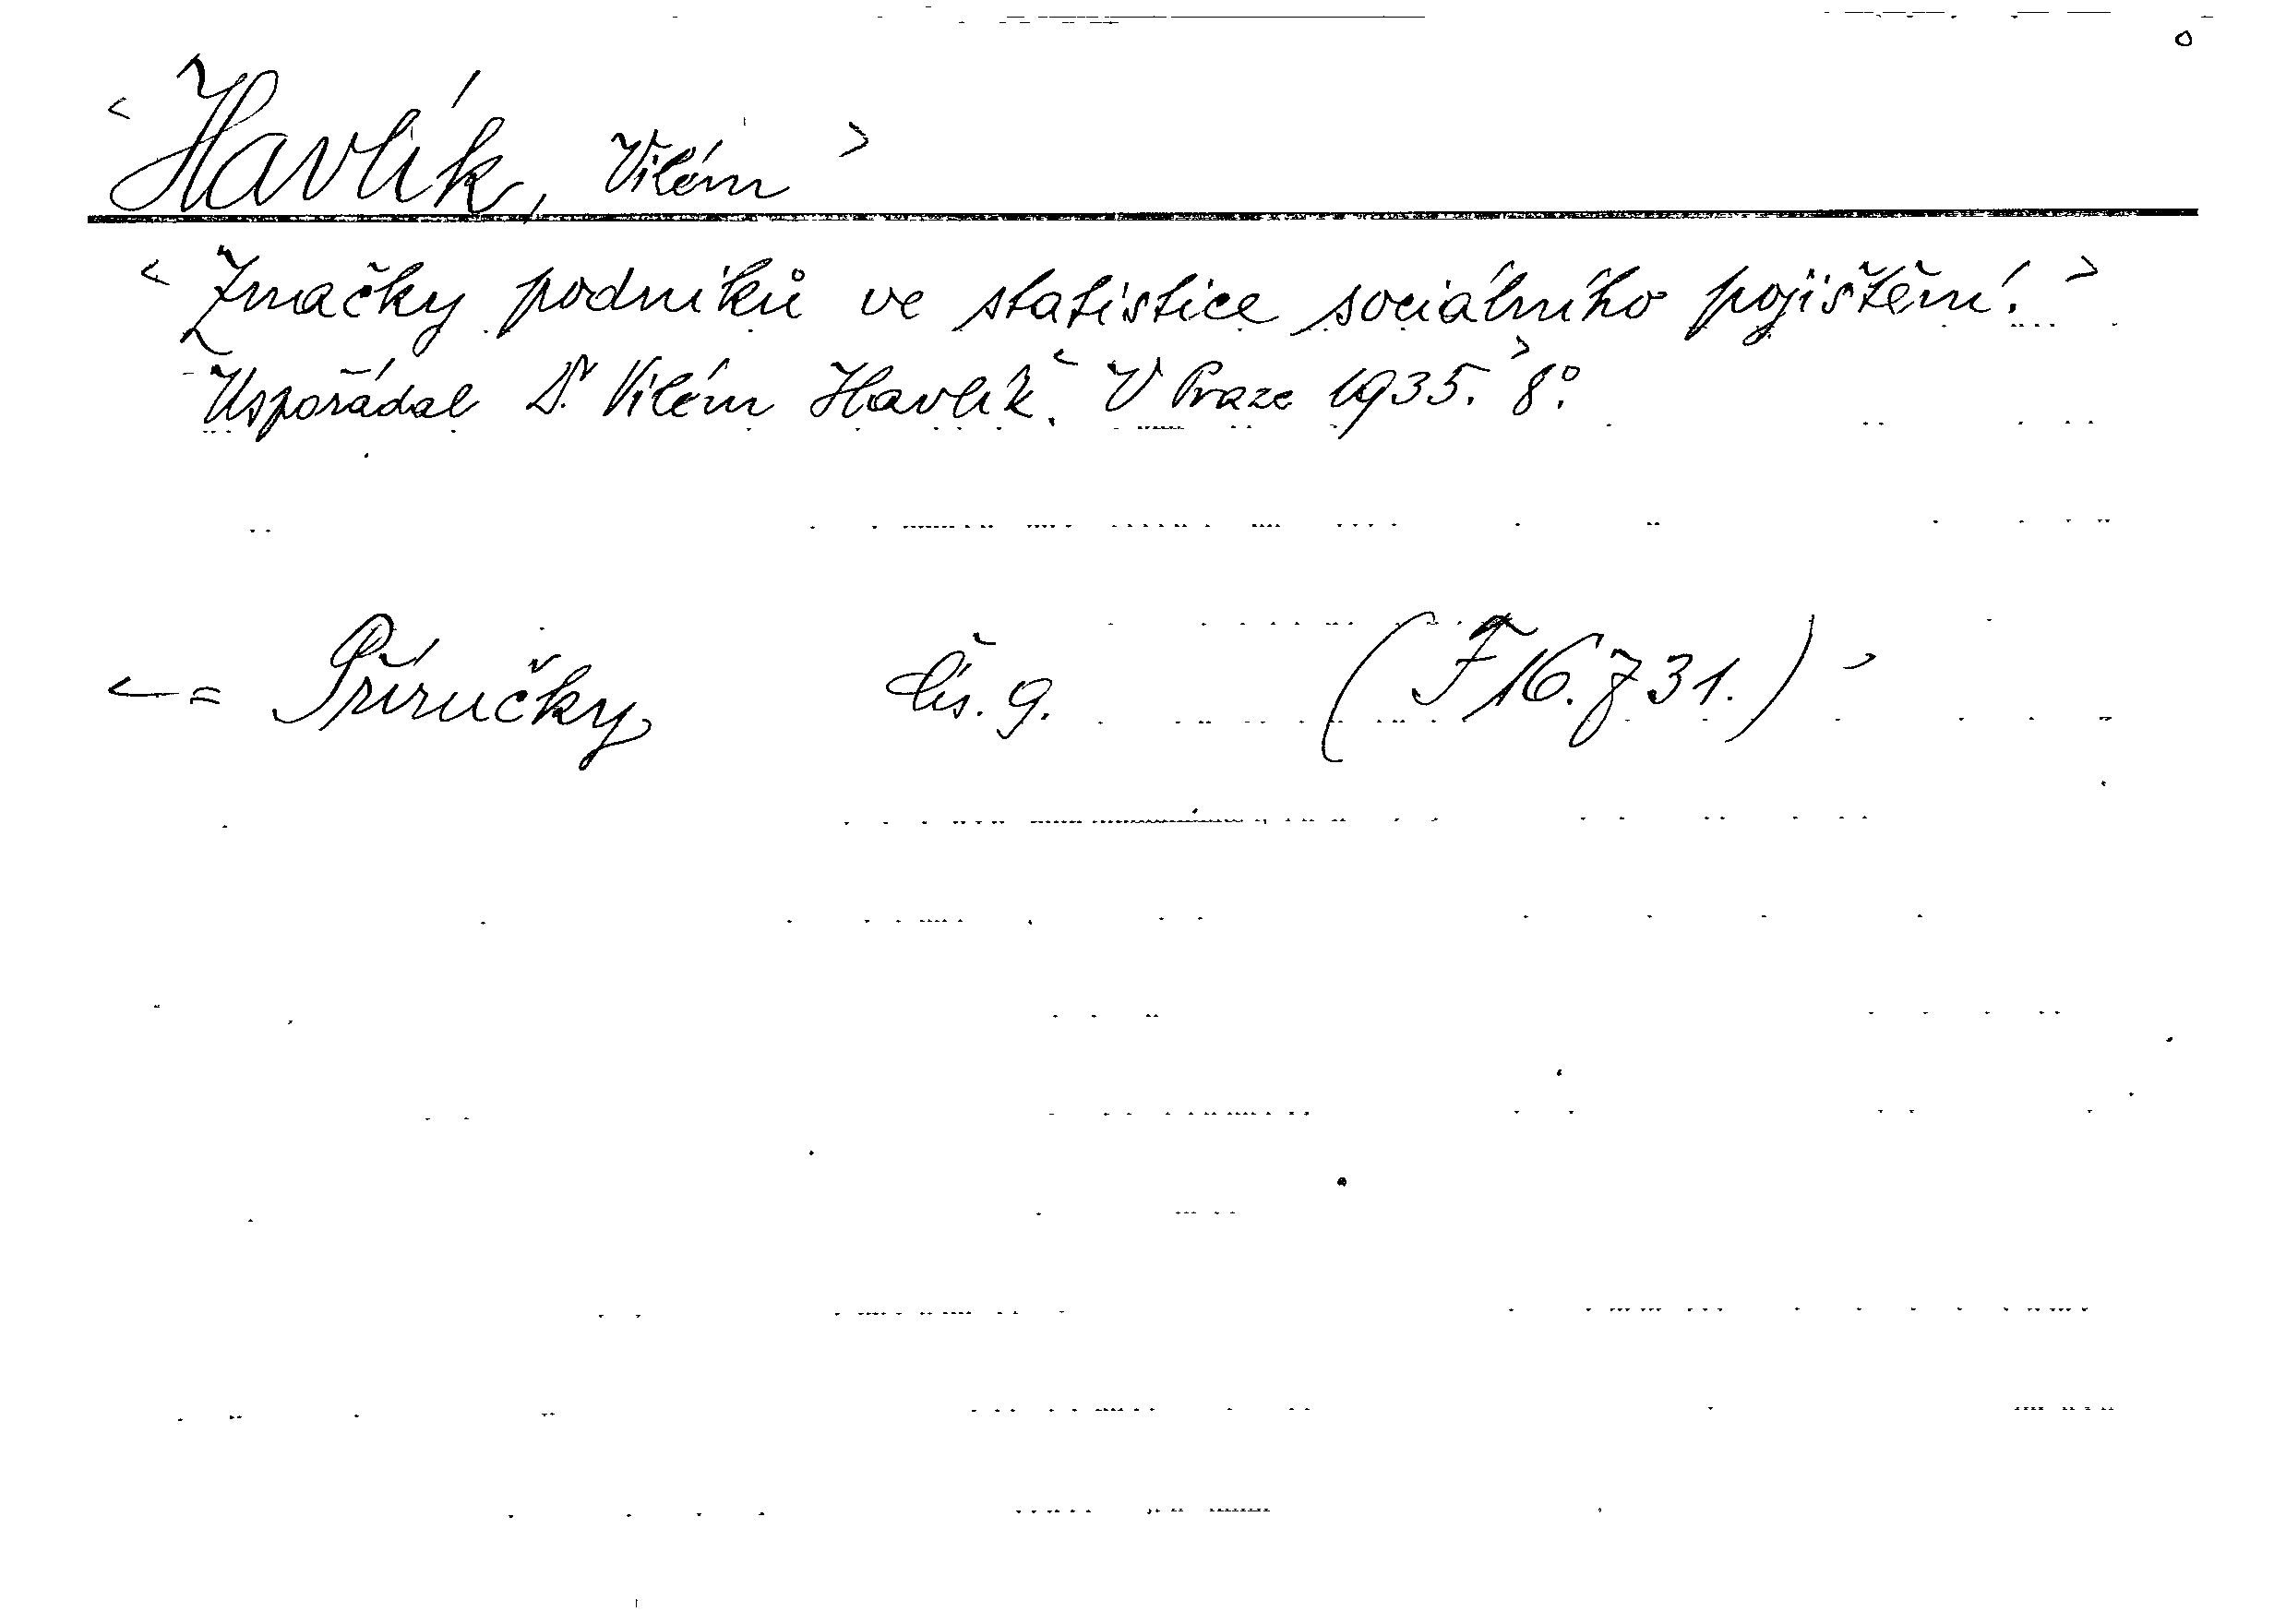 <Havlík, Vilém>
<Značky podniků ve statistice sociálního pojištění.>
Uspořádal Dr. Vilém Havlík. <V Praze 1935.> 8°.
<= Příručky čís. 9. (F 16. z 31.)>